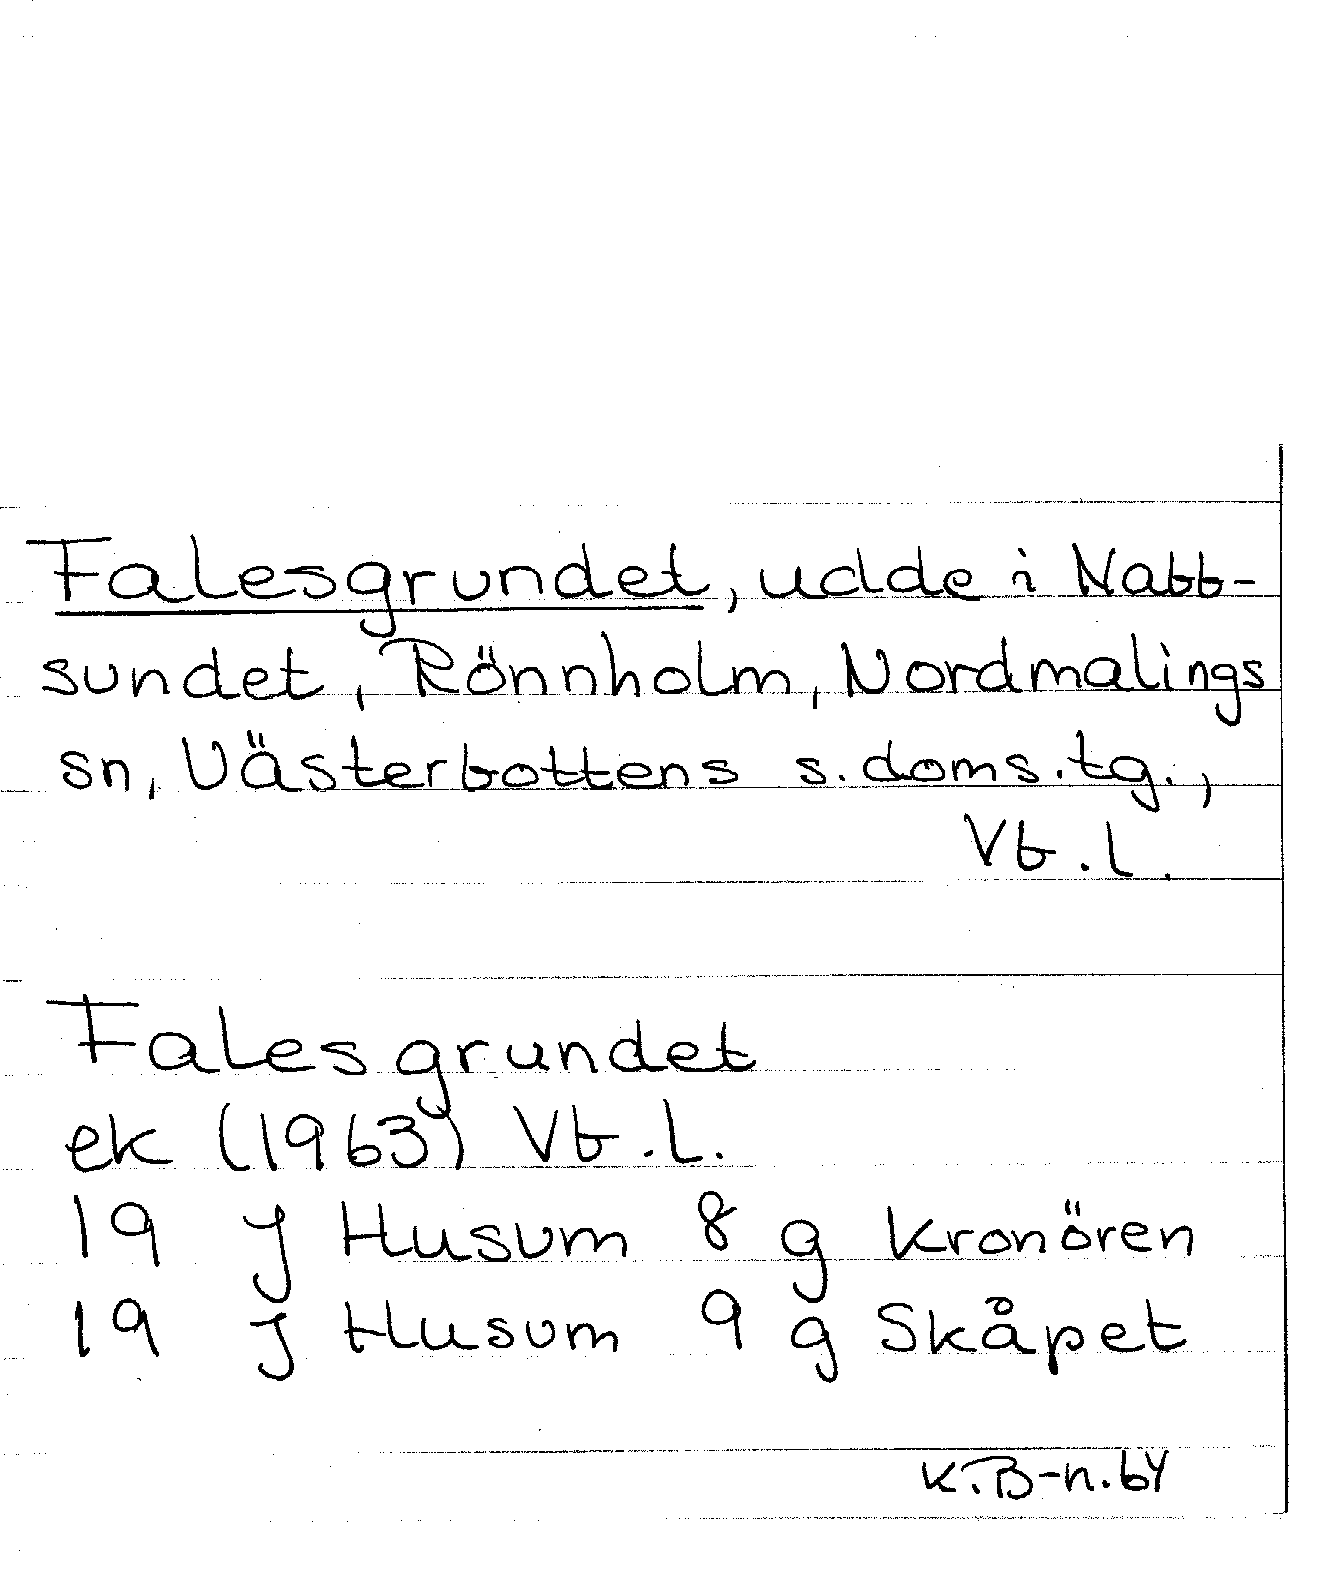 Falesgrundet, udde i Nabb-
sundet, Rönnholm, Nordmalings
sn, Västerbottens s. doms.tg.,
Vb.l.
Falesgrundet
ek (1963) Vb.l.
19 J Husum 8 g Kronören
19 J Husum 9 g Skåpet
K.B-n.64